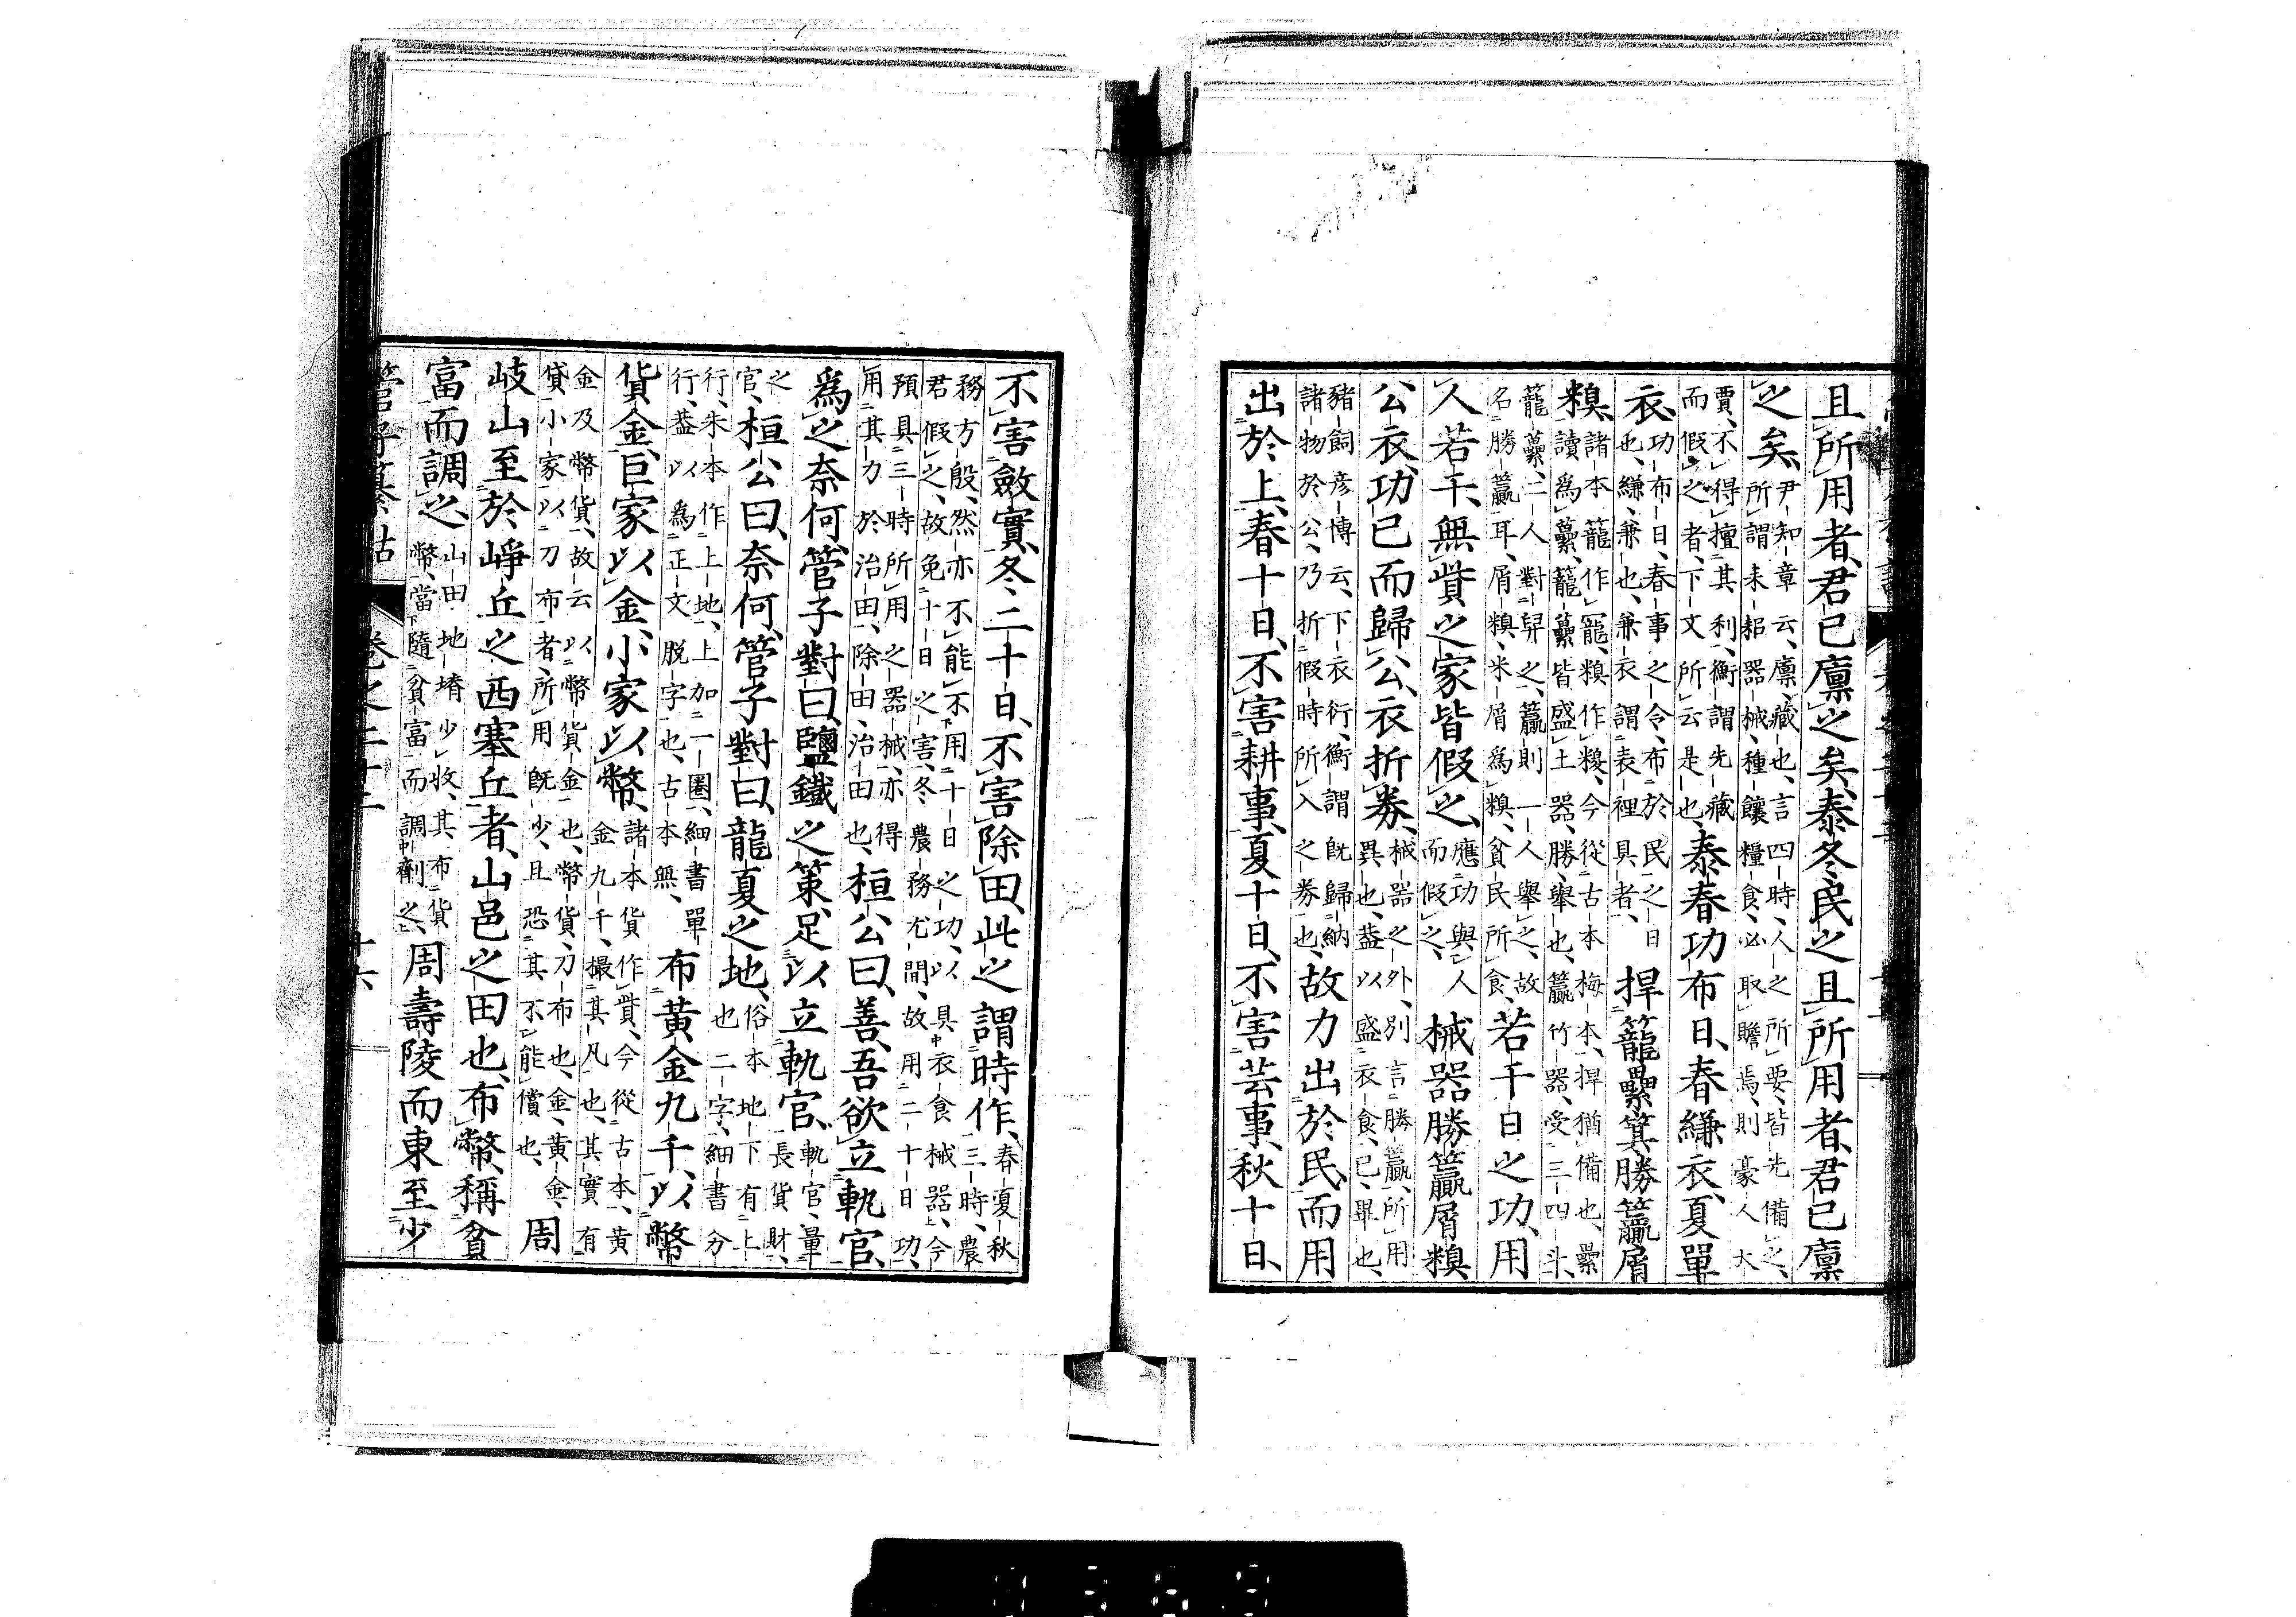 且所用者、君已廩之矣、泰冬、民之且所用者、君已廩
之矣、尹知章云、廩、藏也、言四時、人之所要、皆先備之、所謂耒耜器械、種饟糧食、必取贍焉、則豪人大
賈、不得擅其利、衡謂先藏而假之者、下文所云是也、泰春功布日、春縑衣、夏單
衣、功布日、春事之令、布於民之日也、縑、兼也、兼衣謂表裡具者、捍籠纍箕勝籯屑
糗、諸本籠作寵、糗作糉、今從古本梅本、捍猶備也、纍讀爲虆、籠虆皆盛土器、勝、舉也、籯竹器、受三四斗、
籠虆、二人對舁之、籯則一人舉之、故名勝籯耳、屑糗、米屑爲糗、貧民所食、若干日之功、用
人若干、無貲之家皆假之、應功與人而假之、械器勝籯屑糗、
公衣、功已而歸公、衣折券、械器之外、別言勝籯、所用異也、蓋以盛衣食、已、畢也、
豬飼彦博云、下衣衍、衡謂既歸納諸物於公、乃折假時所入之券也、故力出於民、而用
出於上、春十日、不害耕事、夏十日、不害芸事、秋十日、
不害斂實、冬二十日、不害除田、此之謂時作、春夏秋三時、農
務方殷、然亦不能不用十日之功、以具衣食械器、今君假之、故免十日之害、冬農務尤閒、故用二十日功、
預具三時所用之器械、亦得用其力於治田、除田、治田也、桓公曰、善、吾欲立軌官、
爲之奈何、管子對曰、鹽鐵之策、足以立軌官、軌官、量長貨財、
之官、桓公曰、奈何、管子對曰、龍夏之地、俗本地下有上也二字、細書分
行、朱本作上地、上加二圈、細書單行、蓋以爲正文脱字也、古本無、布黃金九千、以幣
貨金、巨家以金、小家以幣、諸本貨作貲、今從古本、黃金九千、撮其凡也、其實有
金及幣貨、故云以幣貨金也、幣貨、刀布也、金、黃金、貸小家以刀布者、所用既少、且恐其不能償也、周
岐山至於崢丘之西塞丘者、山邑之田也、布幣、稱貧
富而調之、山田地堉少收、其布貨幣、當隨貧富而調劑之、周壽陵而東至少
管子纂詁 卷之二十二